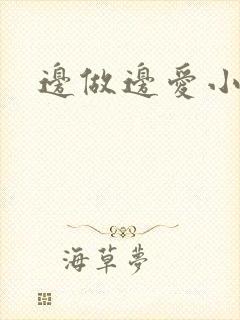 邊做邊愛小
海草夢